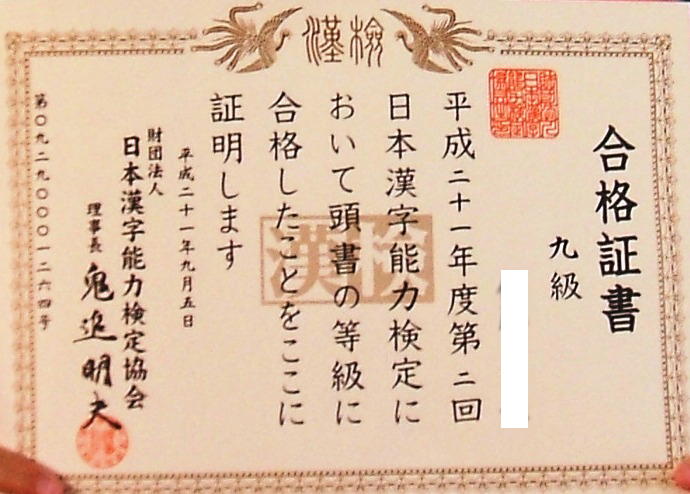 漢検
合格証書
九級
平成二十一年度第二回
日本漢字能力検定に
おいて頭書の等級に
合格したことをここに
証明します
平成二十一年九月五日
財団法人
日本漢字能力検定協会
理事長 鬼追明夫
第〇九二九〇〇〇一二六四号
漢検